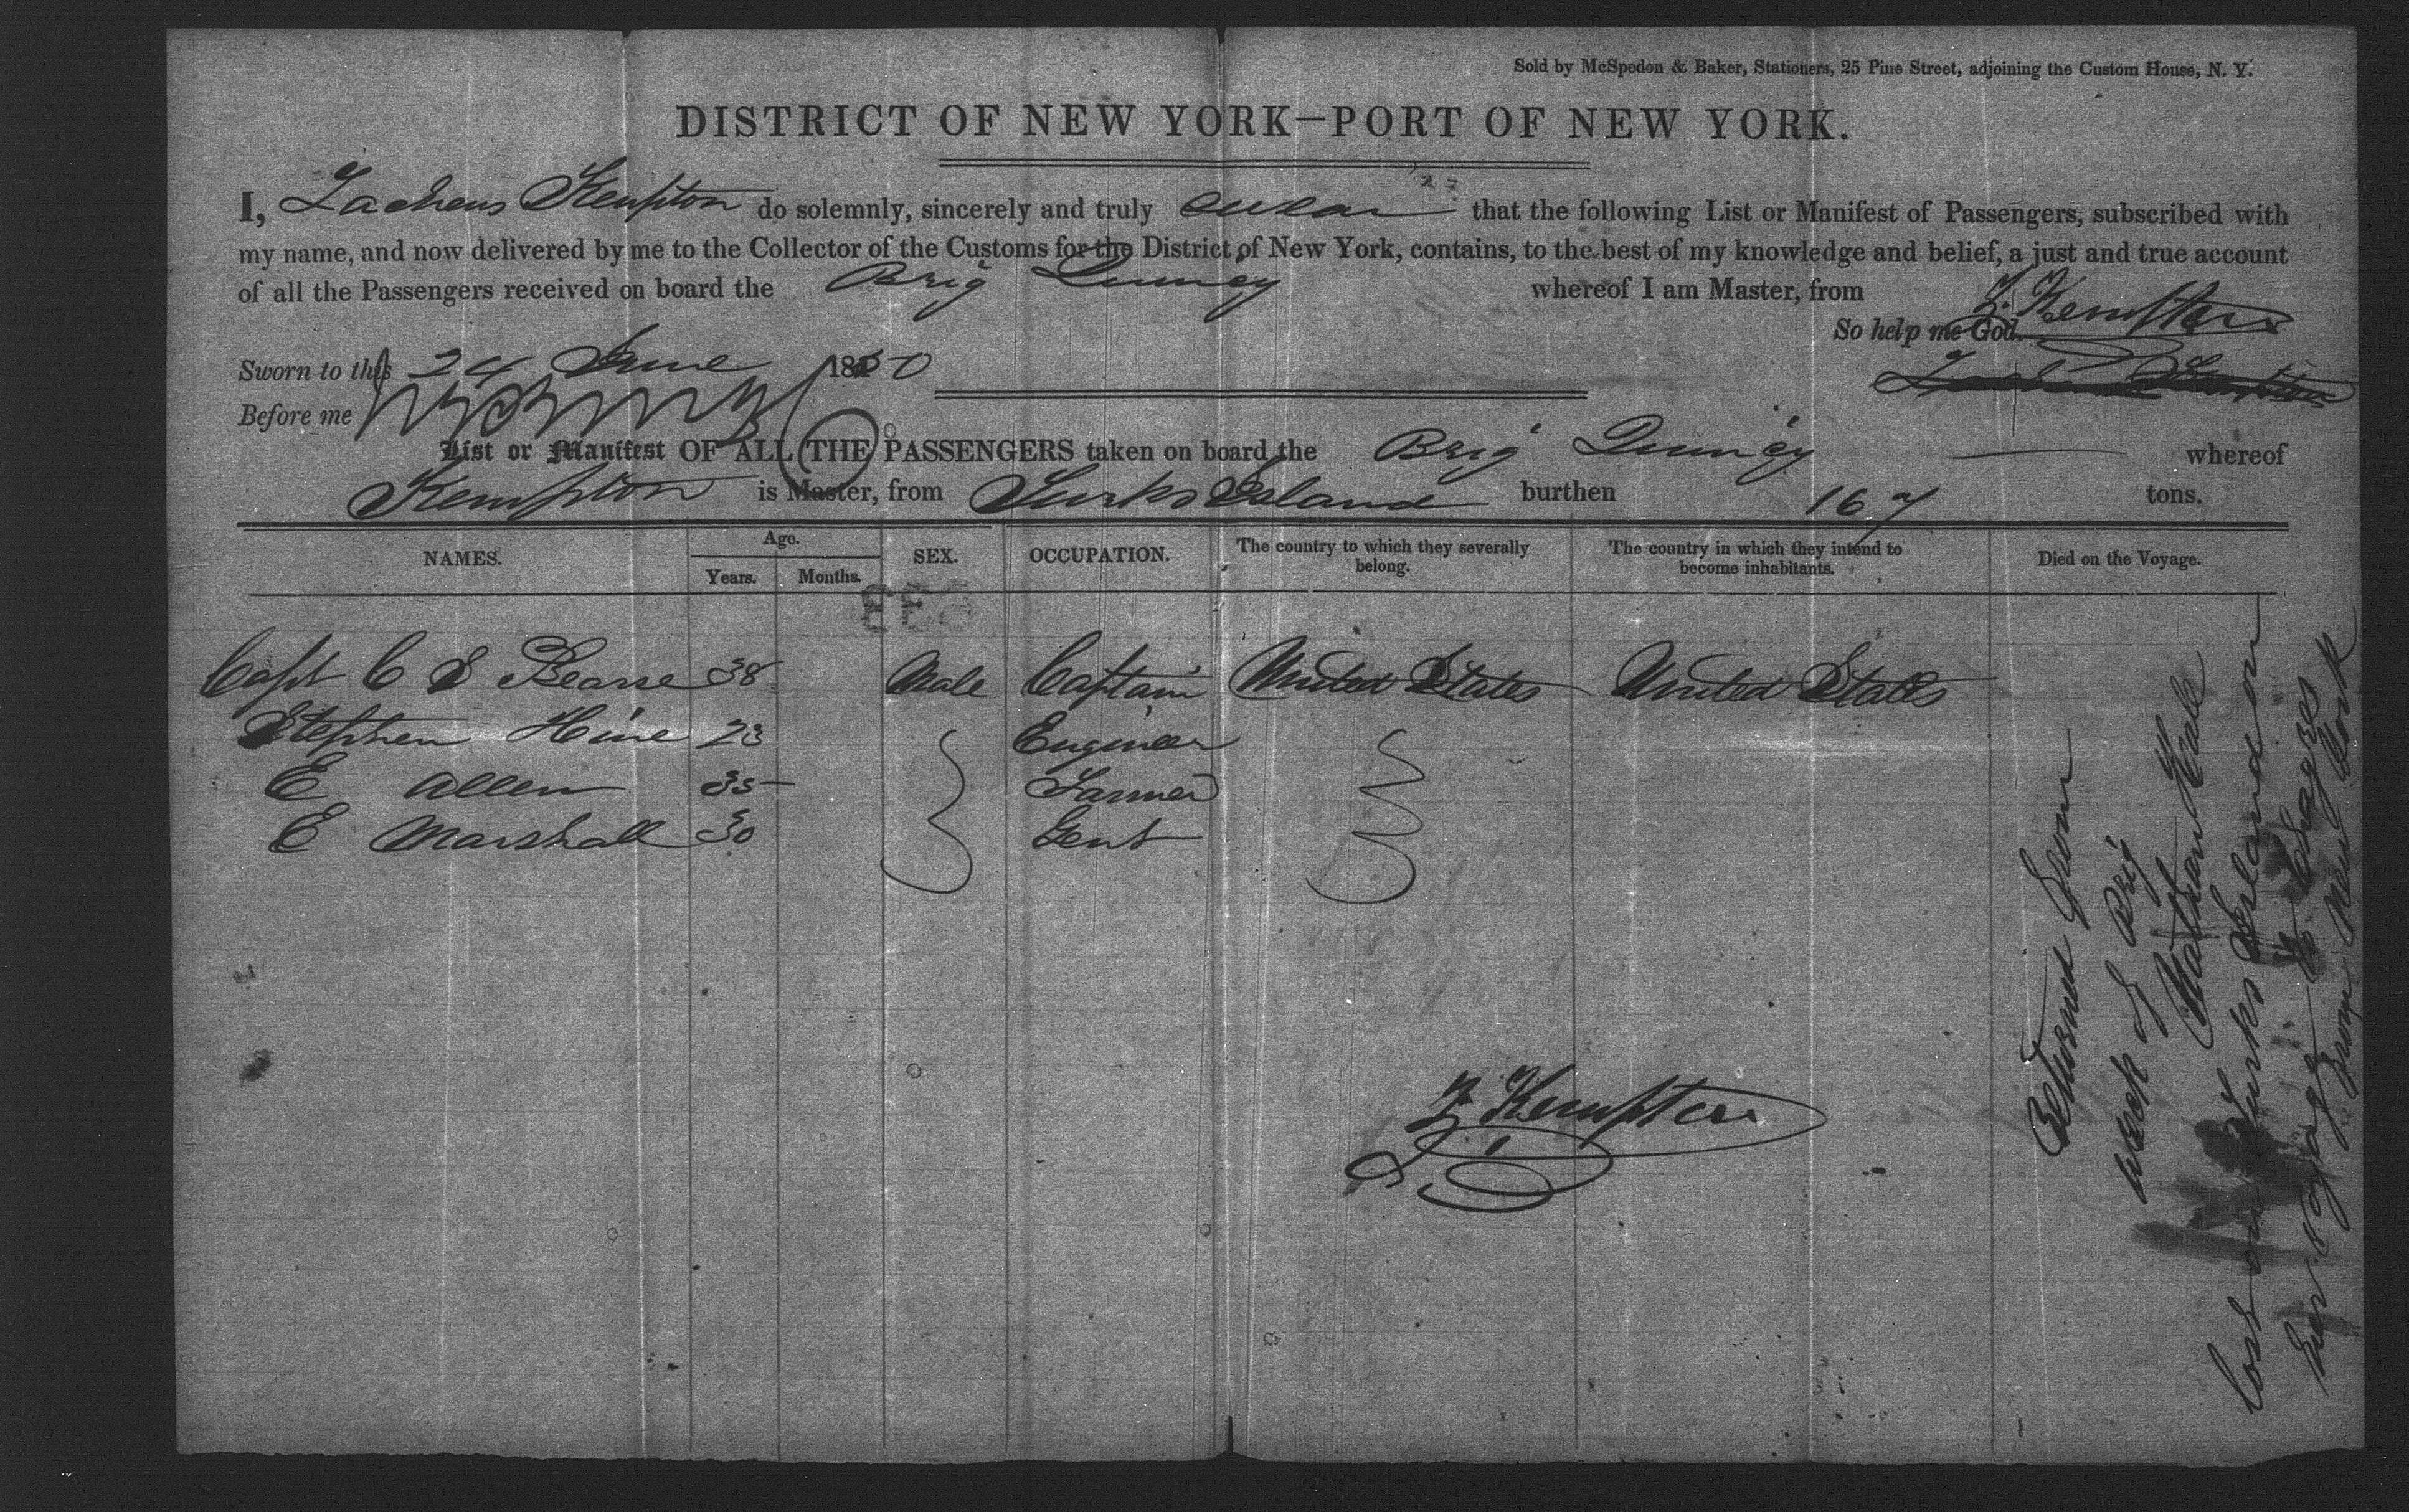 Sold by McSpedon & Baker, Stationers, 25 Pine Street, adjoining the Custom House, N. Y.
DISTRICT OF NEW YORK—PORT OF NEW YORK.
I, Zacheus Kempton do solemnly, sincerely and truly swear that the following List or Manifest of Passengers, subscribed with
my name, and now delivered by me to the Collector of the Customs for the District of New York, contains, to the best of my knowledge and belief, a just and true account
of all the Passengers received on board the Brig Quincy whereof I am Master, from
Z. Kempton
So help me God.
Sworn to this 24 June 1850
Before me
List or Manifest OF ALL THE PASSENGERS taken on board the Brig Quincy whereof
Kempton is Master, from Turks Island burthen 167 tons.
NAMES. Age. Years. Months. SEX. OCCUPATION. The country to which they severally belong. The country in which they intend to become inhabitants. Died on the Voyage.
Capt C S Bearse 38 Male Captain United States United States
Stephen Hine 23 Engineer
E Allen 35 Farmer
E Marshall 30 Gent
Z. Kempton
Returned from
wreck of Brig
Nathan Hale
lost on Turks Island on
her voyage to Chagres
from New York